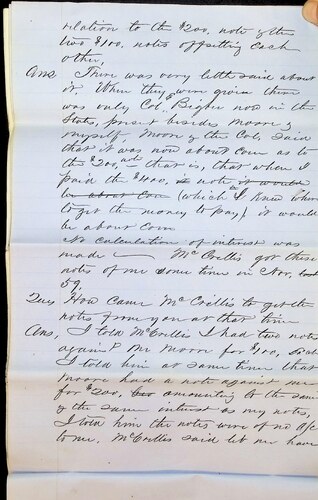 relation to the $200, note & the
two $100. notes offsetting each
other,
Ans There was very little said about
it. When they were given there
was only Col. Bigher now in the
States, present besides Moore &
myself, Moore & the Col. said
that it was now about Even as to
the $200, that is, that when I
paid the $400, note it would
be about Even (which I knew where
to get the money to pay,) it would
be about Even
No calculation of interest was
made — McCrillis got these
notes of me some time in Nov.
59.
Ques How came McCrillis to get the
notes from you at that time
Ans, I told McCrillis I had two notes
against Mr Moore for $100, Each
I told him at same time that
Moore had a note against me
for $200, amounting to the same
& the same interest as my notes,
I told him the notes were of no a/c
to me. McCrillis said let me have